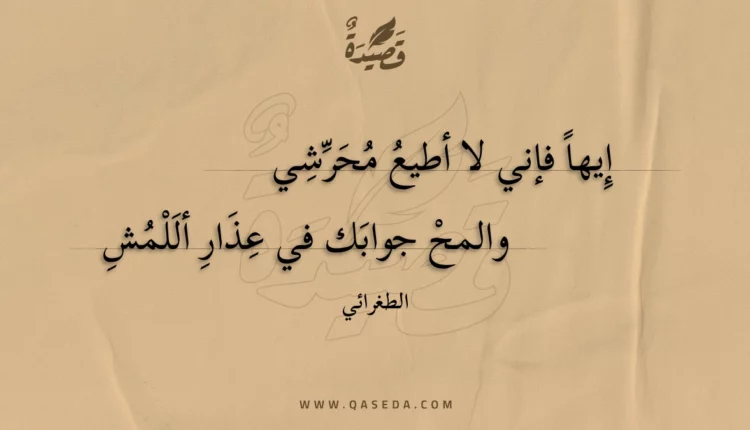 قَصِيْدَةٌ
إِيهاً فإني لا أطيعُ مُحَرِّشِي
والمحْ جوابَك في عِذَارِ ألَلْمُشِ
الطغرائي
WWW.QASEDA.COM